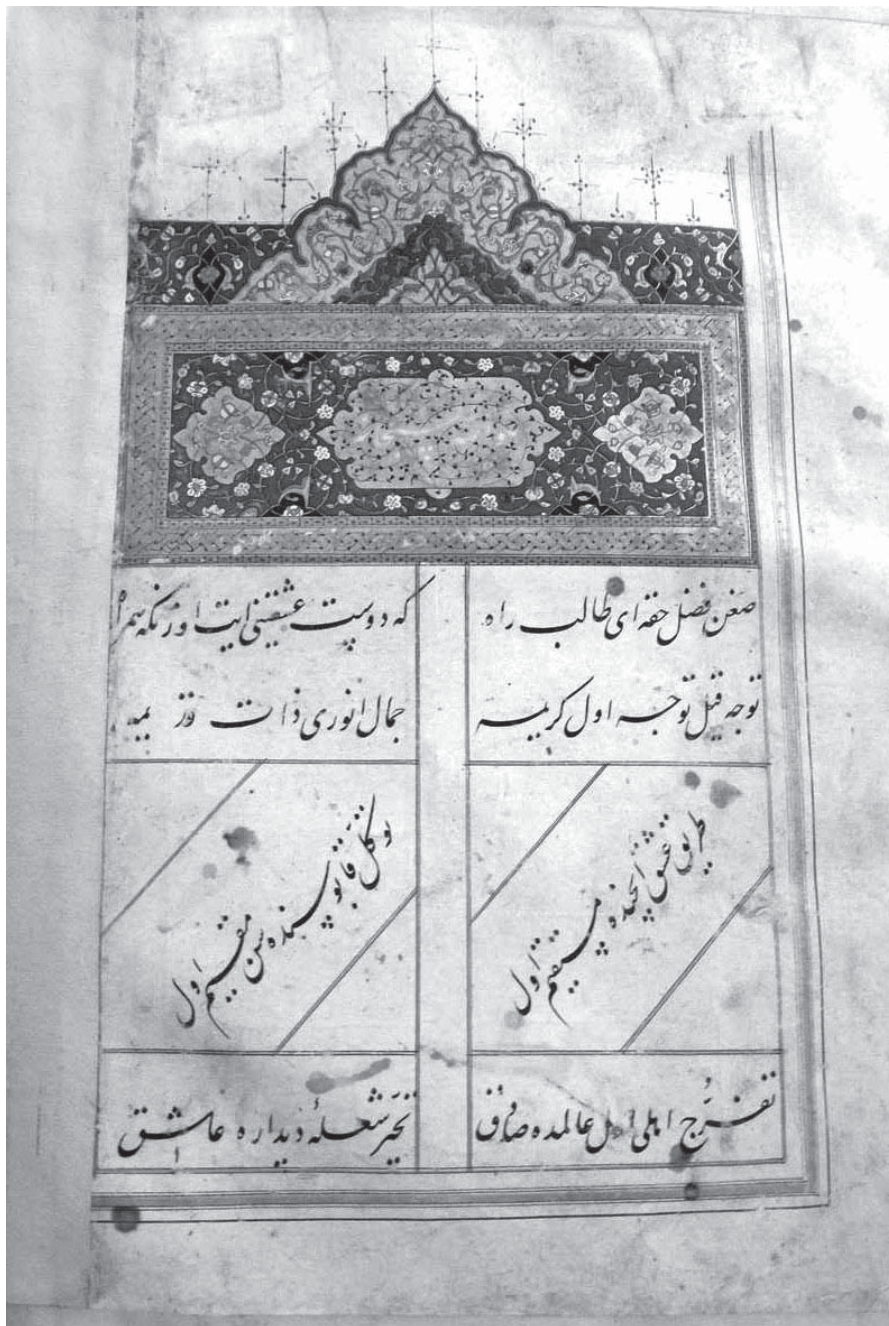 صغن فضل حقه ای طالب راه
که دوست عشقینی ایت اوزنکه همراه
توجه قیل توجه اول کریمه
جمال انوری ذات
طریق عشق ایچنده مستقیم اول
توکل قاپوسنده سن مقیم اول
تفرج اهلی اول عالمده صادق
تحیر شعلهٔ دیداره عاشق